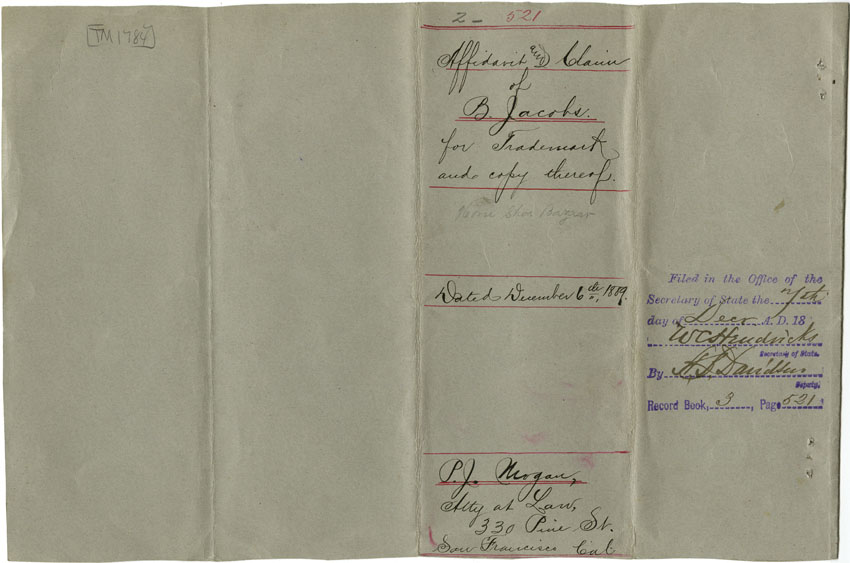 TM1784
2 - 521
Affidavit and Claim
of
B. Jacobs.
for Trademark
and copy thereof.
Horse Shoe Bazaar
Dated December 6th, 1889.
P. J. Mogan,
Atty at Law,
330 Pine St.
San Francisco Cal
Filed in the Office of the
Secretary of State the 7th
day of Decr A. D. 18
W C Hendricks
Secretary of State.
By
Deputy.
Record Book, 3, Page 521